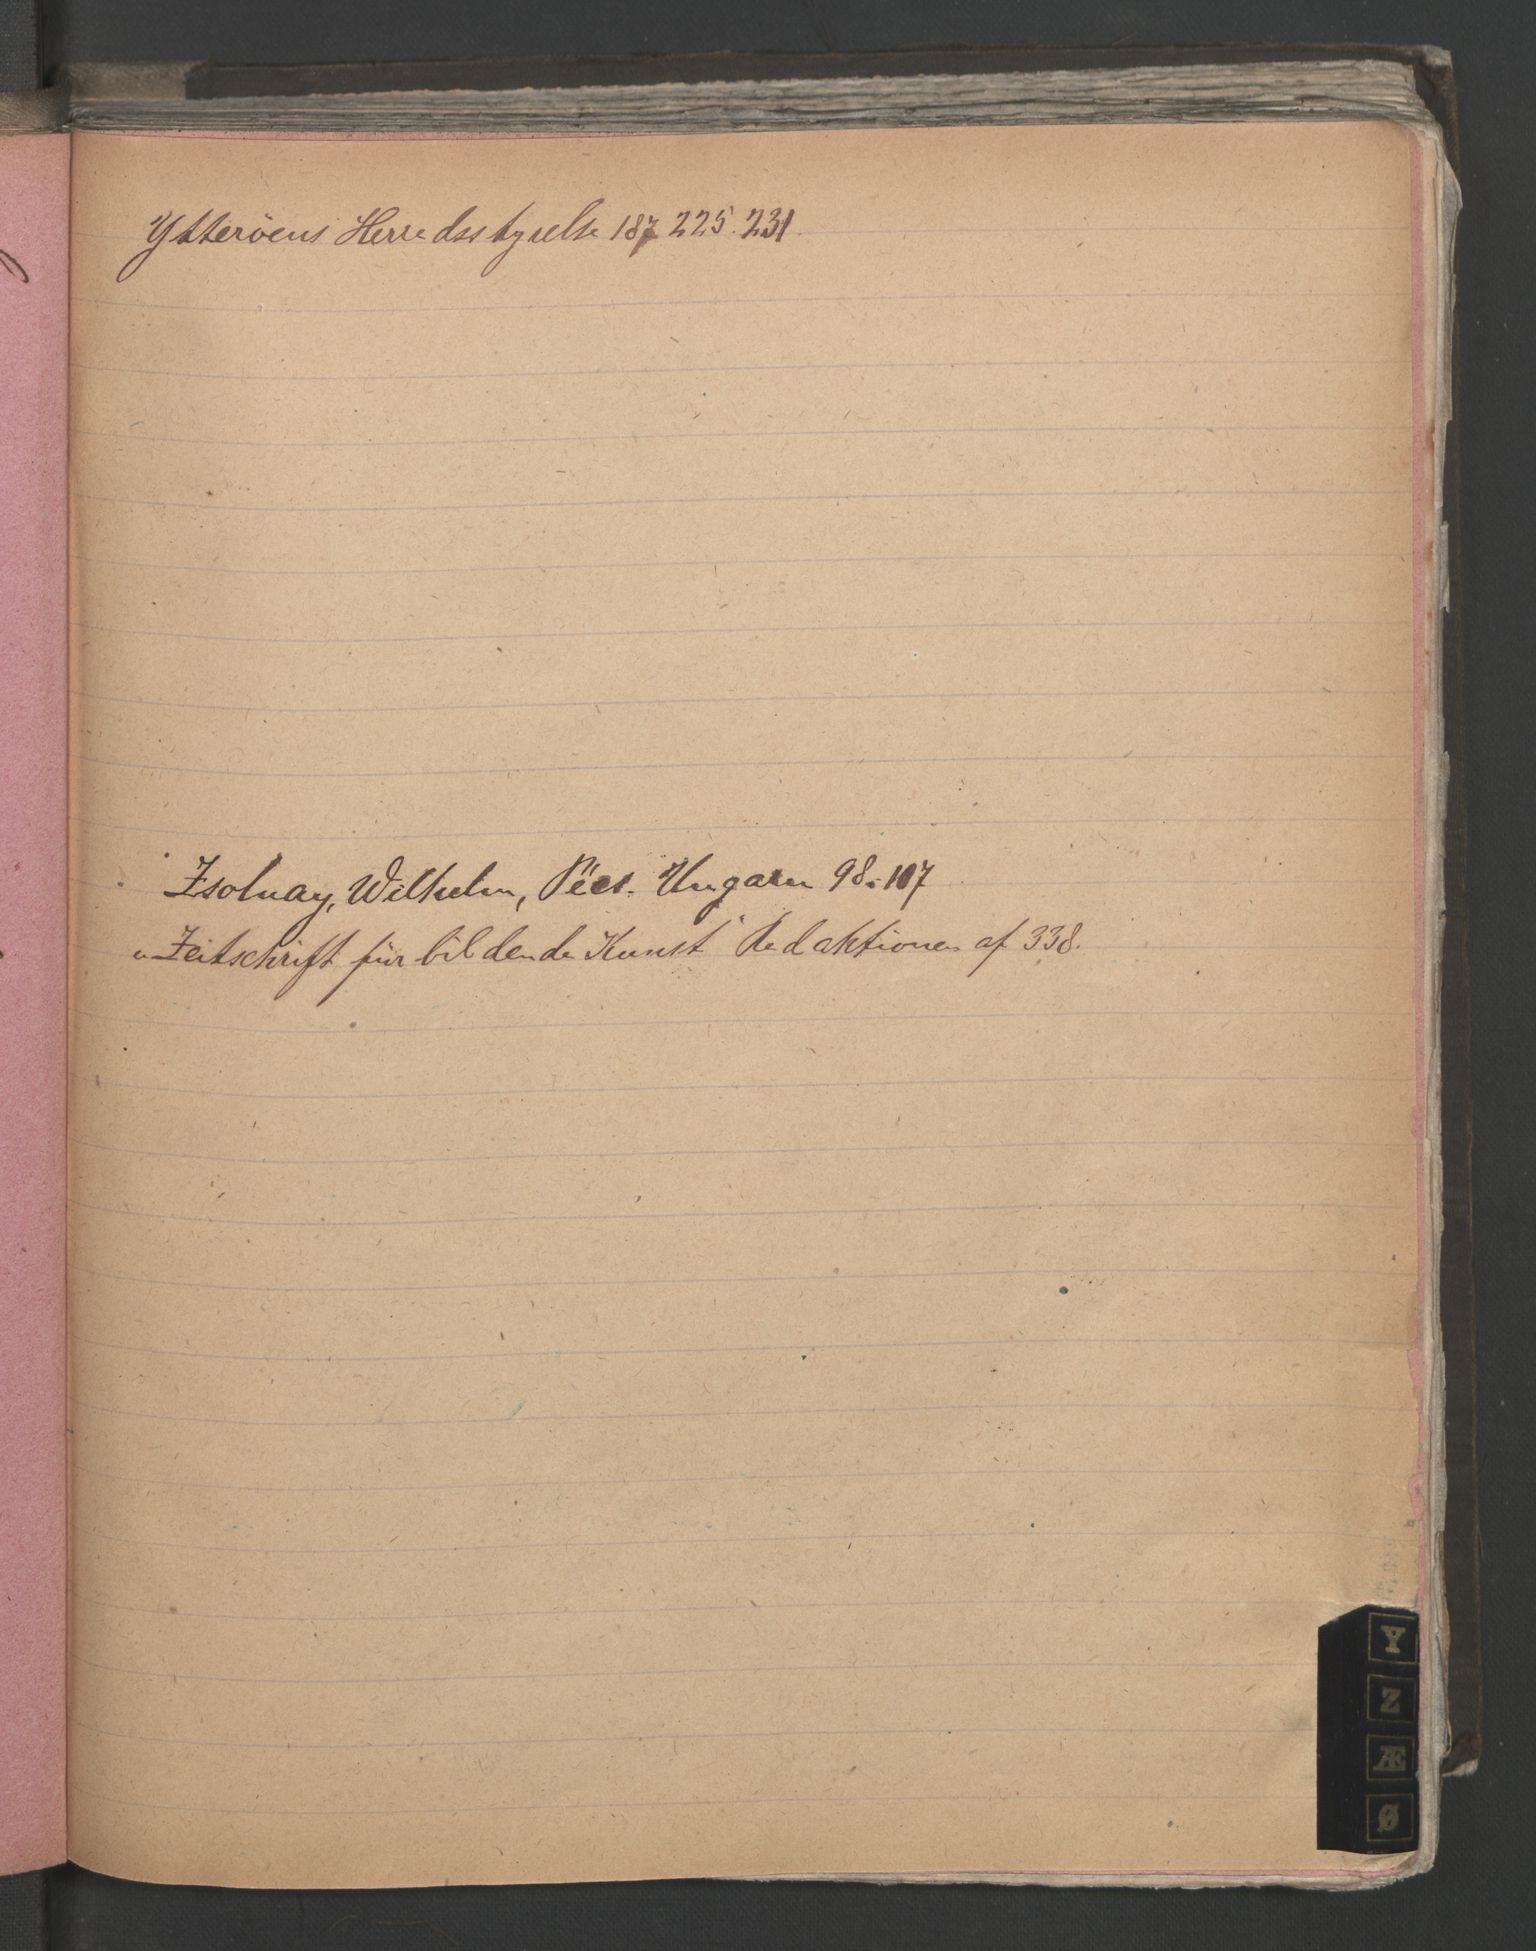 Ytterøens Herredsstyrelse 187 225. 231.
Zsolnay, Wilhelm, Pécs. Ungarn 98. 107
„Zeitschrift für bildende Kunst" Redaktionen af 338.
Y
Z
Æ
Ø